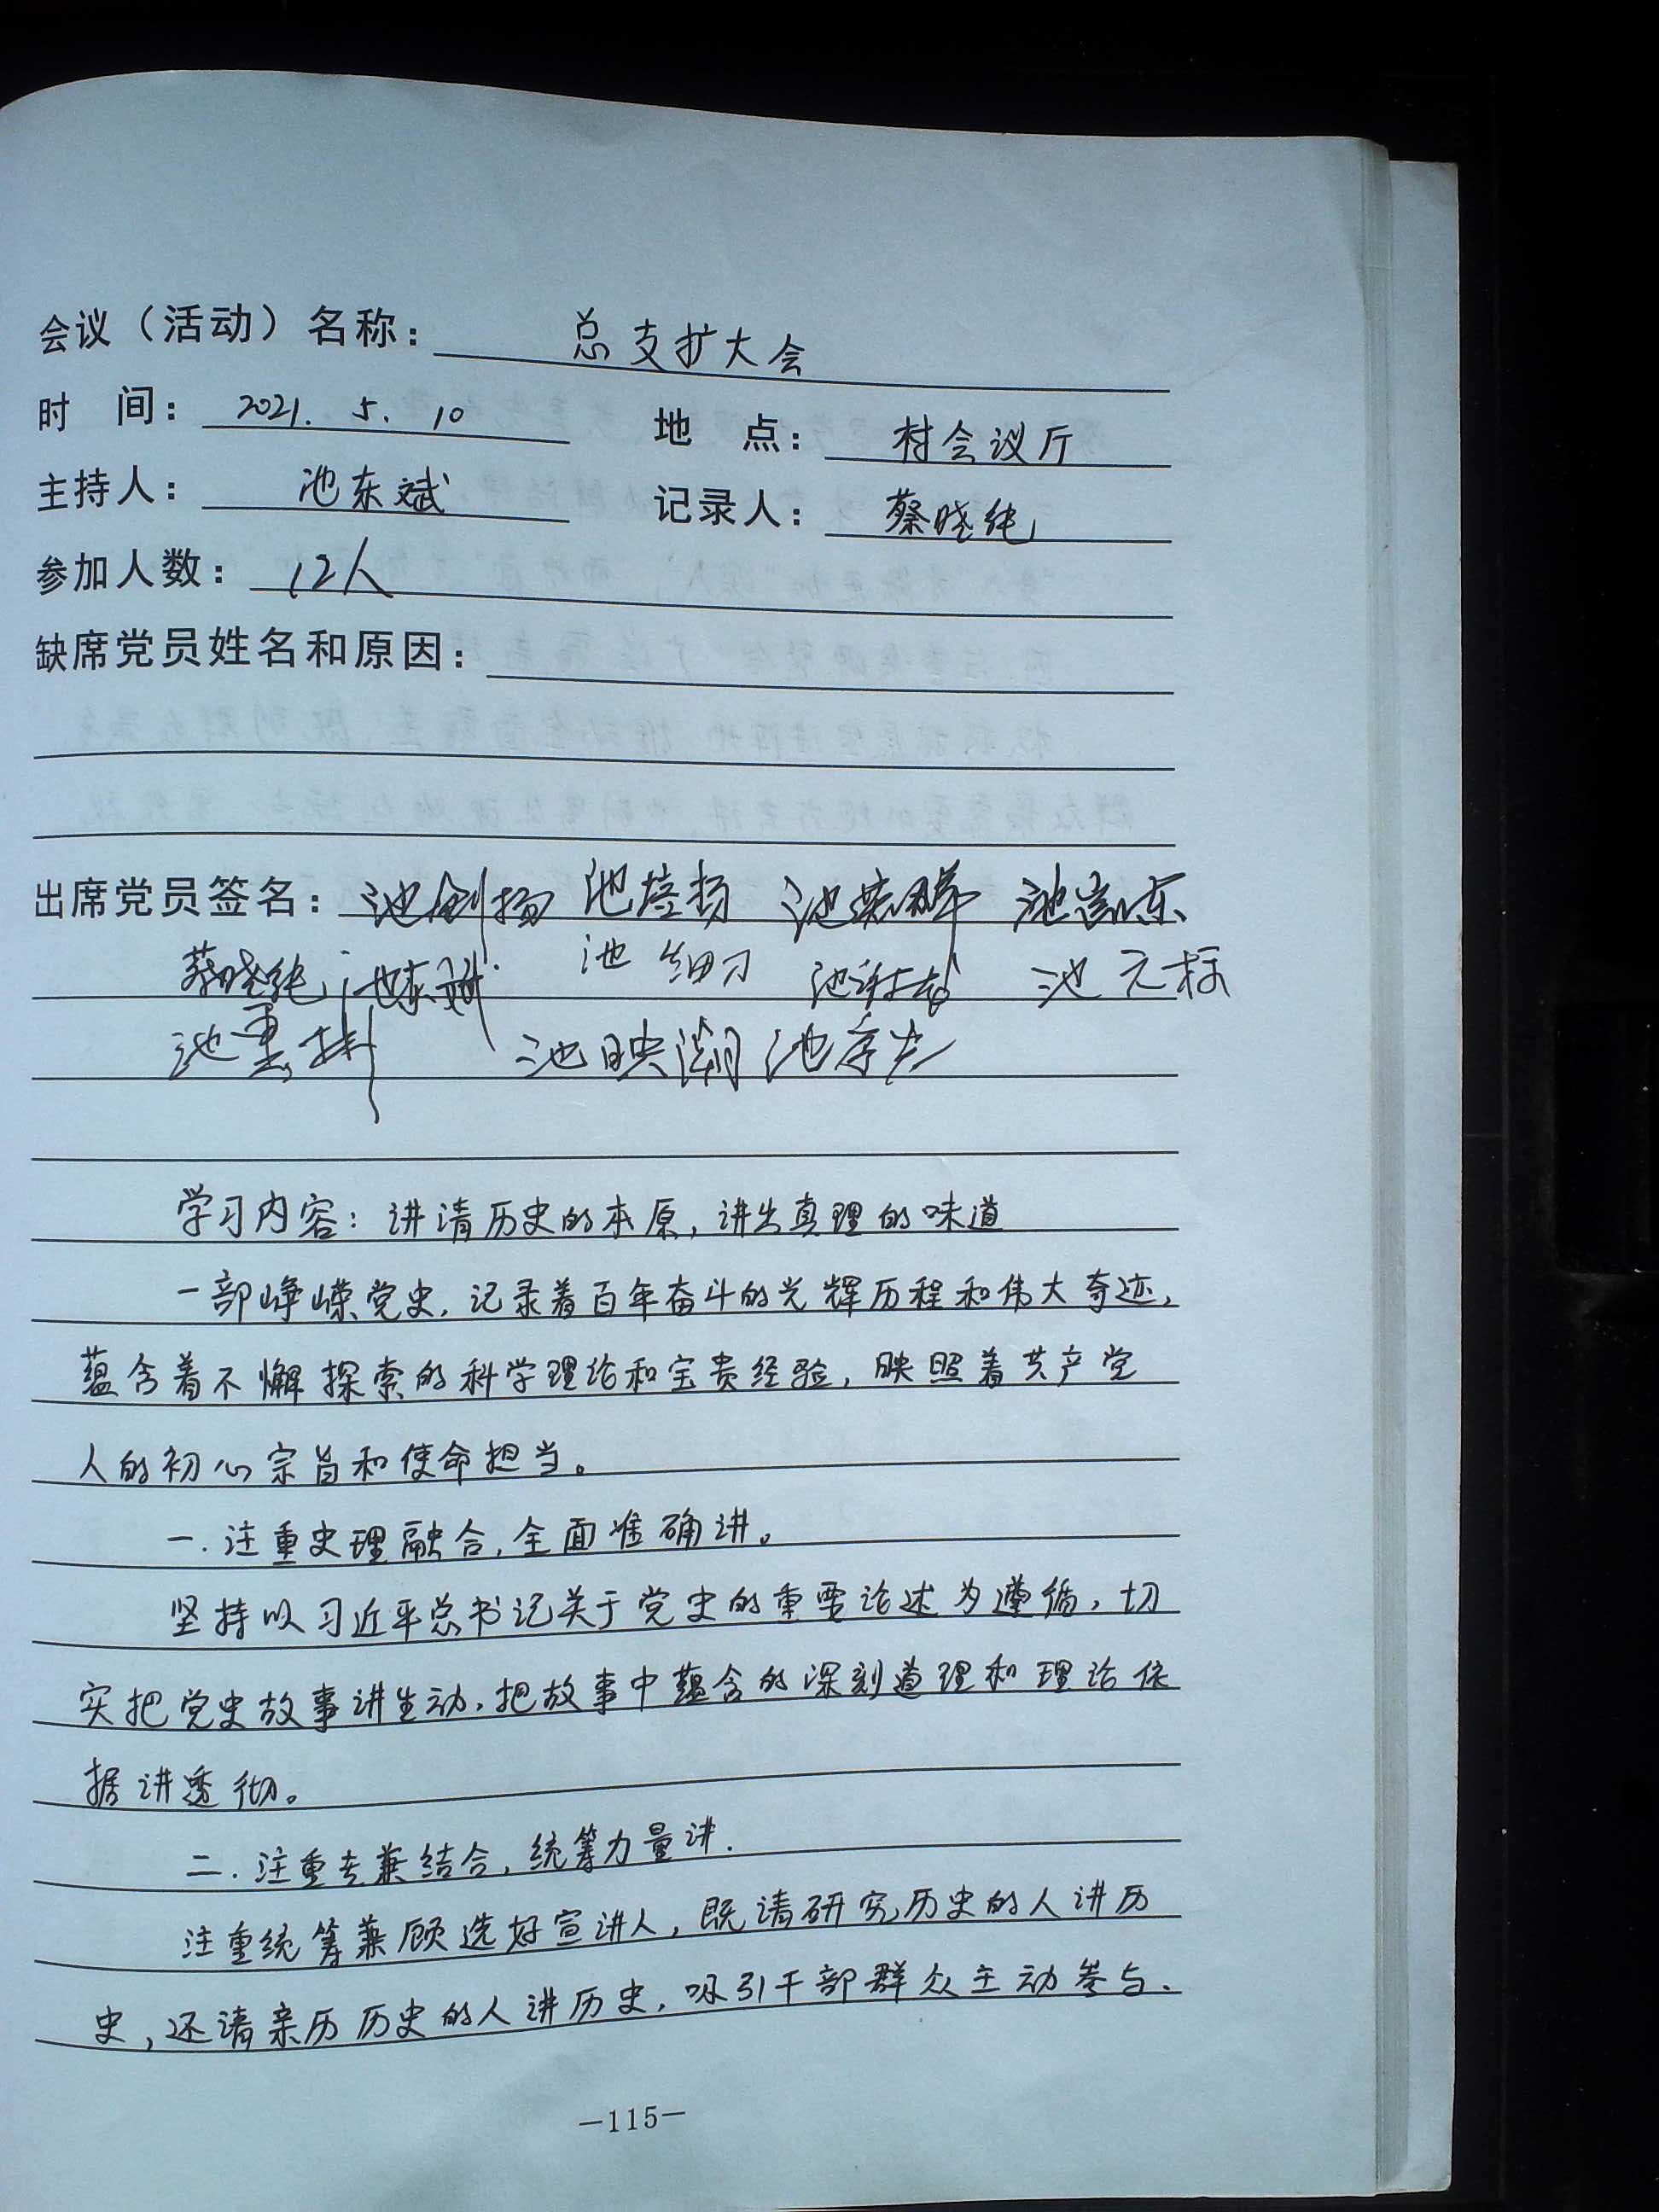 会议（活动）名称： 总支扩大会
时 间： 2021. 5. 10 地 点： 村会议厅
主持人： 池东斌 记录人： 蔡晓纯
参加人数： 12人
缺席党员姓名和原因：
出席党员签名： 池剑扬 池培扬
蔡晓纯 池东斌 池细刀 池元标
池映潮
学习内容：讲清历史的本原，讲出真理的味道
一部峥嵘党史，记录着百年奋斗的光辉历程和伟大奇迹，
蕴含着不懈探索的科学理论和宝贵经验，映照着共产党
人的初心宗旨和使命担当。
一.注重史理融合，全面准确讲。
坚持以习近平总书记关于党史的重要论述为遵循，切
实把党史故事讲生动，把故事中蕴含的深刻道理和理论依
据讲透彻。
二.注重专兼结合，统筹力量讲.
注重统筹兼顾选好宣讲人，既请研究历史的人讲历
史，还请亲历历史的人讲历史，吸引干部群众主动参与、
—115—